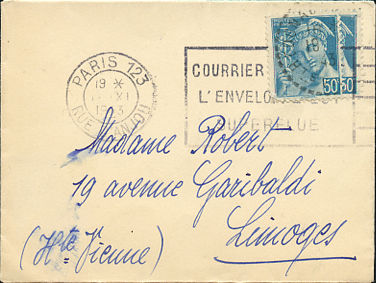 PARIS 123
19 *
XI
RUE D'ANJOU
COURRIER
L'ENVELO
SUPERFLUE
50
50
Madame Robert
19 avenue Garibaldi
Limoges
(Hte Vienne)